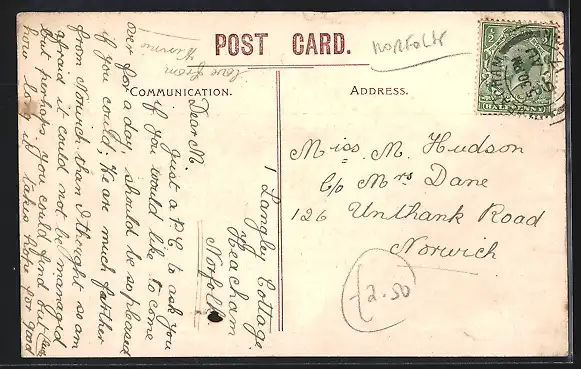 POST CARD.
NORFOLK
COMMUNICATION.
ADDRESS.
1 Langley Cottage.
Heacham
Norfolk
Dear M.
Just a P.C. to ask you
if you would like to come
over for a day, should be so pleased
if you could; We are much farther
from Norwich than I thought so am
afraid it could not be managed
but perhaps you could find out
how long it takes hope for good
love from
Winnie
Miss. M. Hudson
C/o Mrs Dane
126 Unthank Road
Norwich
£2.50
HALFPENNY